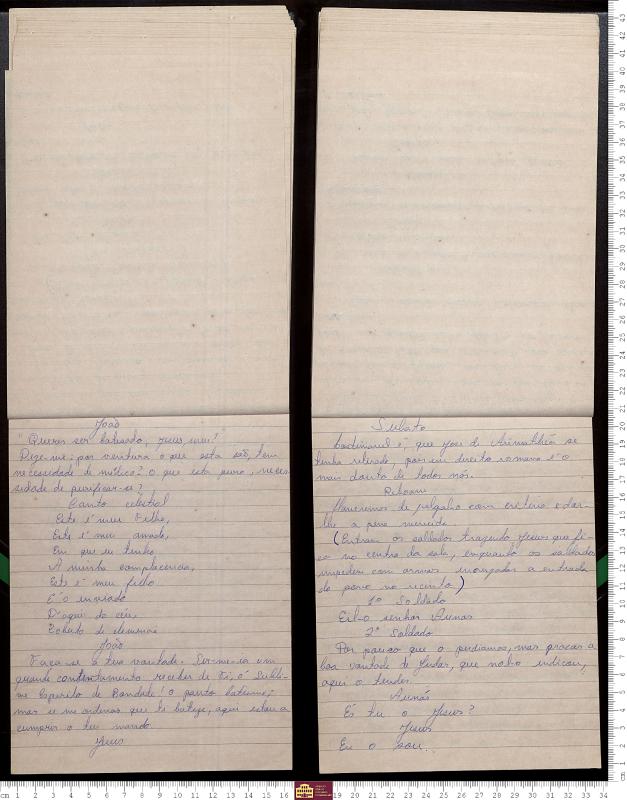 João
"Queres ser batisado, Jesus, meu!
Dize-me: por ventura o que está são, tem
necessidade de médico? O que esta puro, neces-
sidade de purificar-se?
Canto celestial
Este é meu Filho,
Este é meu amado,
Em que eu tenho
A minha complacencia,
Este é meu filho
E o enviado
D'aqui do céu,
João
Faça-se a tua vontade. Ser-me-ia um
grande contentamento receber de Ti, ó Subli-
me Espirito de Bondade! O santo batismo;
mas se me ordenas que te batize, aqui estou a
cumprir o teu mando
Jesus
Subato
é que José de Arimathéa se
tenha retirado, pois em direito romano é o
mais douto de todos nós.
Havemos de julga-lo com criterio e dar-
lhe a pena merecida.
(Entram os soldados trazendo Jesus que fi-
ca no centro da sala, enquanto os soldados
impedem com armas a entrada
do povo no recinto)
1º Soldado
Eil-o senhor Annás
2º Soldado
Por pouco que o perdiamos, mas graças a
boa vontade de Judas, que nol-o indicou,
aqui o tendes.
Annás
És tu o Jesus?
Jesus
Eu o sou.